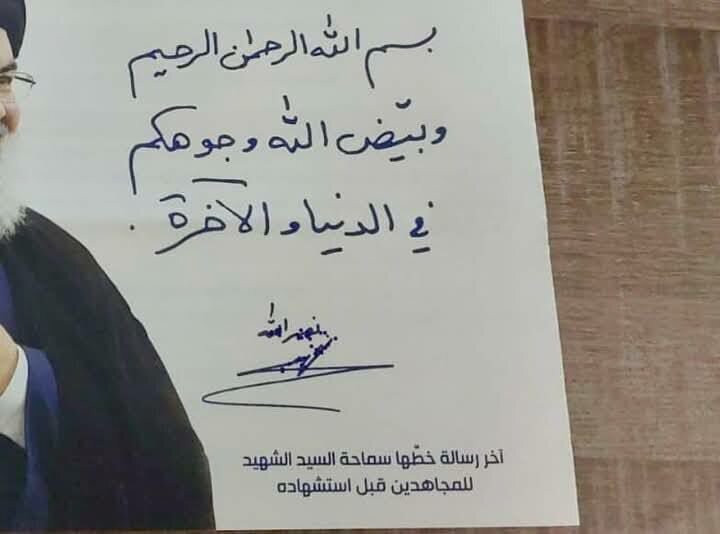 بسم الله الرحمن الرحيم
وبيّض الله وجوهكم
في الدنيا و الآخرة .
نصر الله
آخر رسالة خطّها سماحة السيد الشهيد
للمجاهدين قبل استشهاده